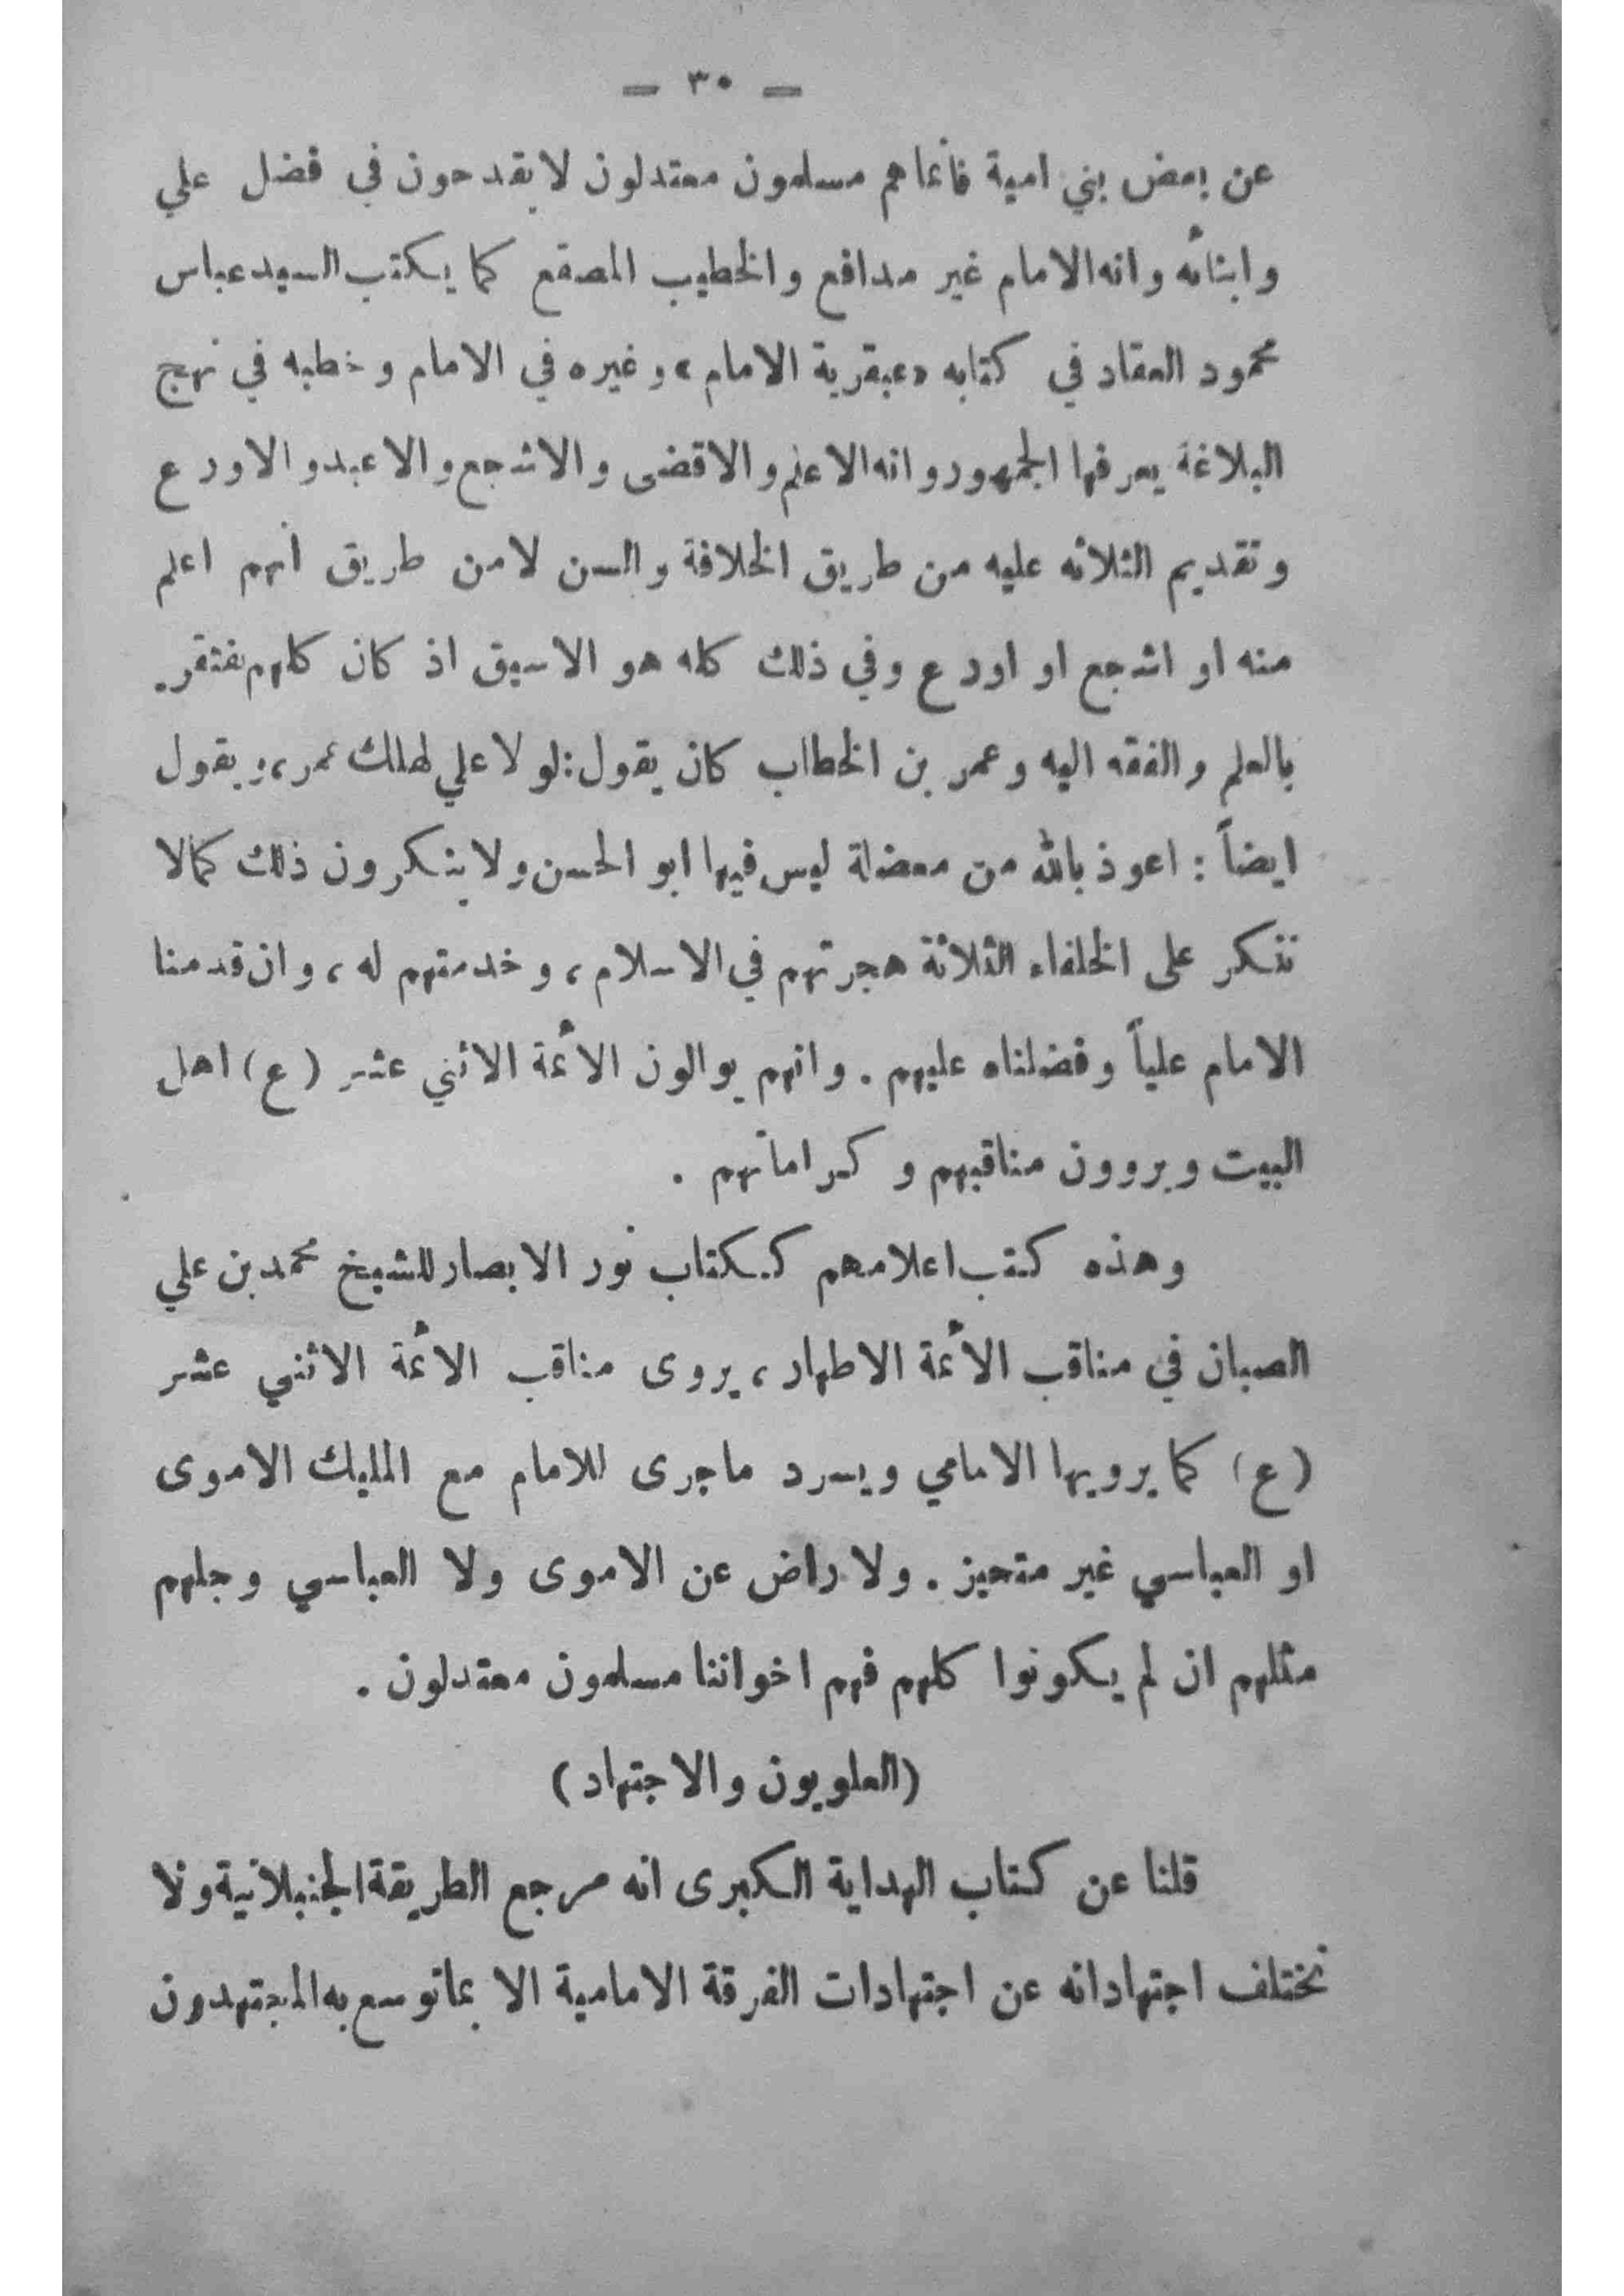 — ٣٠ —
عن بعض بني امية فانما هم مسلمون معتدلون لا يقدحون في فضل علي
وابنائه وانه الامام غير مدافع والخطيب المصقع كما يكتب السيد عباس
محمود العقاد في كتابه «عبقرية الامام» وغيره في الامام وخطبه في نهج
البلاغة يعرفها الجمهور وانه الاعلم والاقضى والاشجع والاعبد والاورع
وتقديم الثلاثه عليه من طريق الخلافة والسن لا من طريق انهم اعلم
منه او اشجع او اورع وفي ذلك كله هو الاسبق اذ كان كلهم يفتقر.
بالعلم والفقه اليه وعمر بن الخطاب كان يقول: لولا علي لهلك عمر، ويقول
ايضاً : اعوذ بالله من معضلة ليس فيها ابو الحسن ولا ينكرون ذلك كما لا
ننكر على الخلفاء الثلاثة هجرتهم في الاسلام ، وخدمتهم له ، وان قدمنا
الامام علياً وفضلناه عليهم . وانهم يوالون الأئمة الاثني عشر (ع) اهل
البيت ويروون مناقبهم وكراماتهم .
وهذه كتب اعلامهم ككتاب نور الابصار للشيخ محمد بن علي
الصبان في مناقب الأئمة الاطهار ، يروى مناقب الأئمة الاثني عشر
(ع) كما يرويها الامامي ويسرد ما جرى للامام مع المليك الاموى
او العباسي غير متحيز . ولا راض عن الاموى ولا العباسي وجلهم
مثلهم ان لم يكونوا كلهم فهم اخواننا مسلمون معتدلون .
(العلويون والاجتهاد)
قلنا عن كتاب الهداية الكبرى انه مرجع الطريقة الجنبلانية ولا
تختلف اجتهاداته عن اجتهادات الفرقة الامامية الا بما توسع به المجتهدون